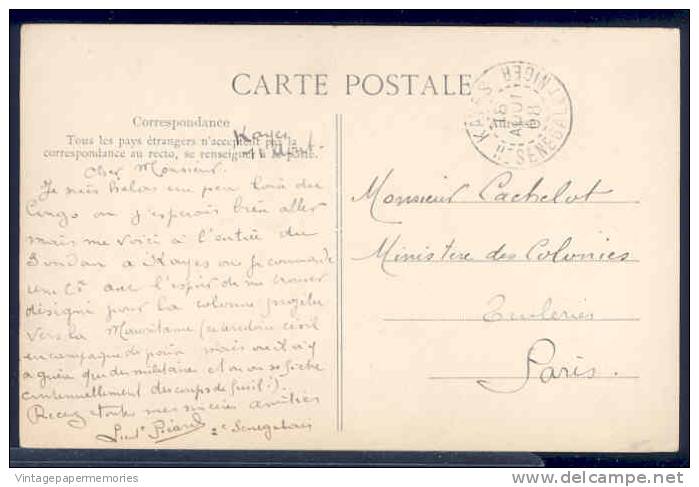 CARTE POSTALE
Correspondance
Tous les pays étrangers n'acceptent pas la
correspondance au recto, se renseigner à la poste.
Kayes
Août
KAYES
18
AOUT
08
Hᵗ SENEGAL ET NIGER
Cher Monsieur.
Je suis hélas un peu loin du
Congo ou j'espérais bien aller
mais me voici à l'entrée du
Soudan a Kayes ou je commande
une Cⁱᵉ avec l'espoir de me trouver
désigné pour la colonne projetée
vers la Mauritanie
mais ou il n'y
a guère que des militaires et ou on se fiche
continuellement des coups de fusil!).
Recevez toutes mes sincères amitiés
Lieut 2e Senegalais
Monsieur Cachelot
Ministere des Colonies
Tuileries
Paris.
Vintagepapermemories
delcampe.net